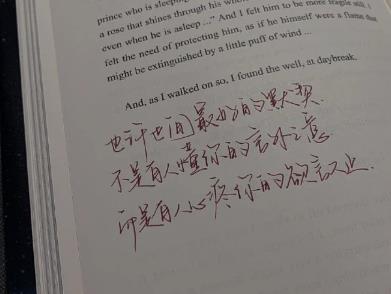 prince who is sleeping
a rose that shines through his whole
even when he is asleep ..." And I felt him to be more fragile still. I
felt the need of protecting him, as if he himself were a flame that
might be extinguished by a little puff of wind ...
And, as I walked on so, I found the well, at daybreak.
也许世间最好的默契
不是有人懂你的言外之意
而是有人心疼你的欲言又止.